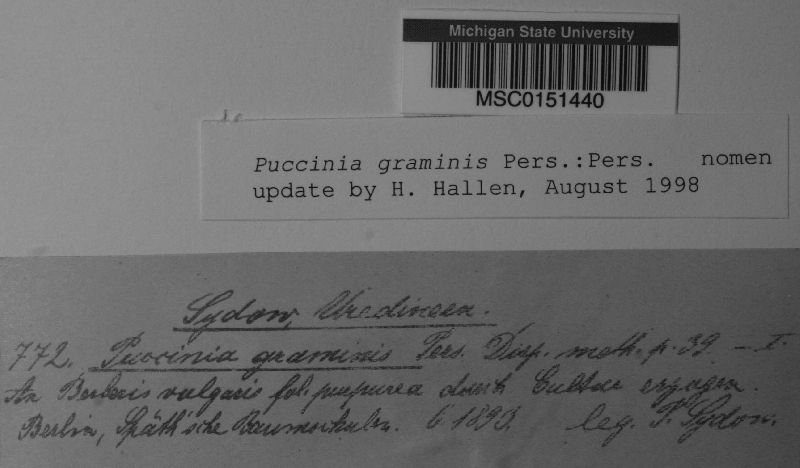 Michigan State University
MSC0151440
Puccinia graminis Pers.:Pers. nomen
update by H. Hallen, August 1998
Sydow, Uredineen.
772. Puccinia graminis Pers. Disp. meth. p. 39 — I.
An Berberis vulgaris fol. purpurea durch Cultur erzogen.
Berlin, Späth'sche Baumschulen. 6 1893. leg. P. Sydow.